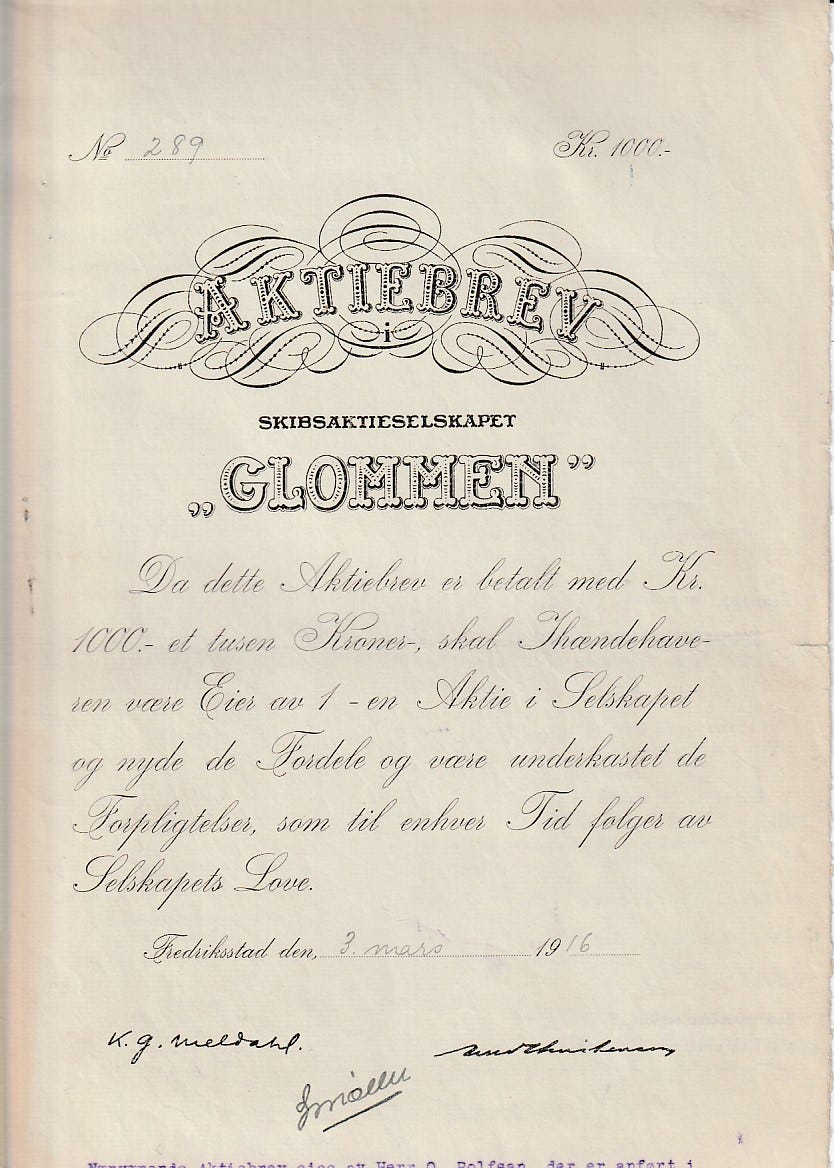 No 289 Kr. 1000.-
AKTIEBREV
i
SKIBSAKTIESELSKAPET
„GLOMMEN”
Da dette Aktiebrev er betalt med Kr.
1000.- et tusen Kroner-, skal Ihændehave-
ren være Eier av 1 - en Aktie i Selskapet
og nyde de Fordele og være underkastet de
Forpligtelser, som til enhver Tid følger av
Selskapets Love.
Fredriksstad den, 3. mars 1916
K. G. Meldahl.
Nærværende Aktiebrev eies av Herr O. Rolfsen, der er anført i